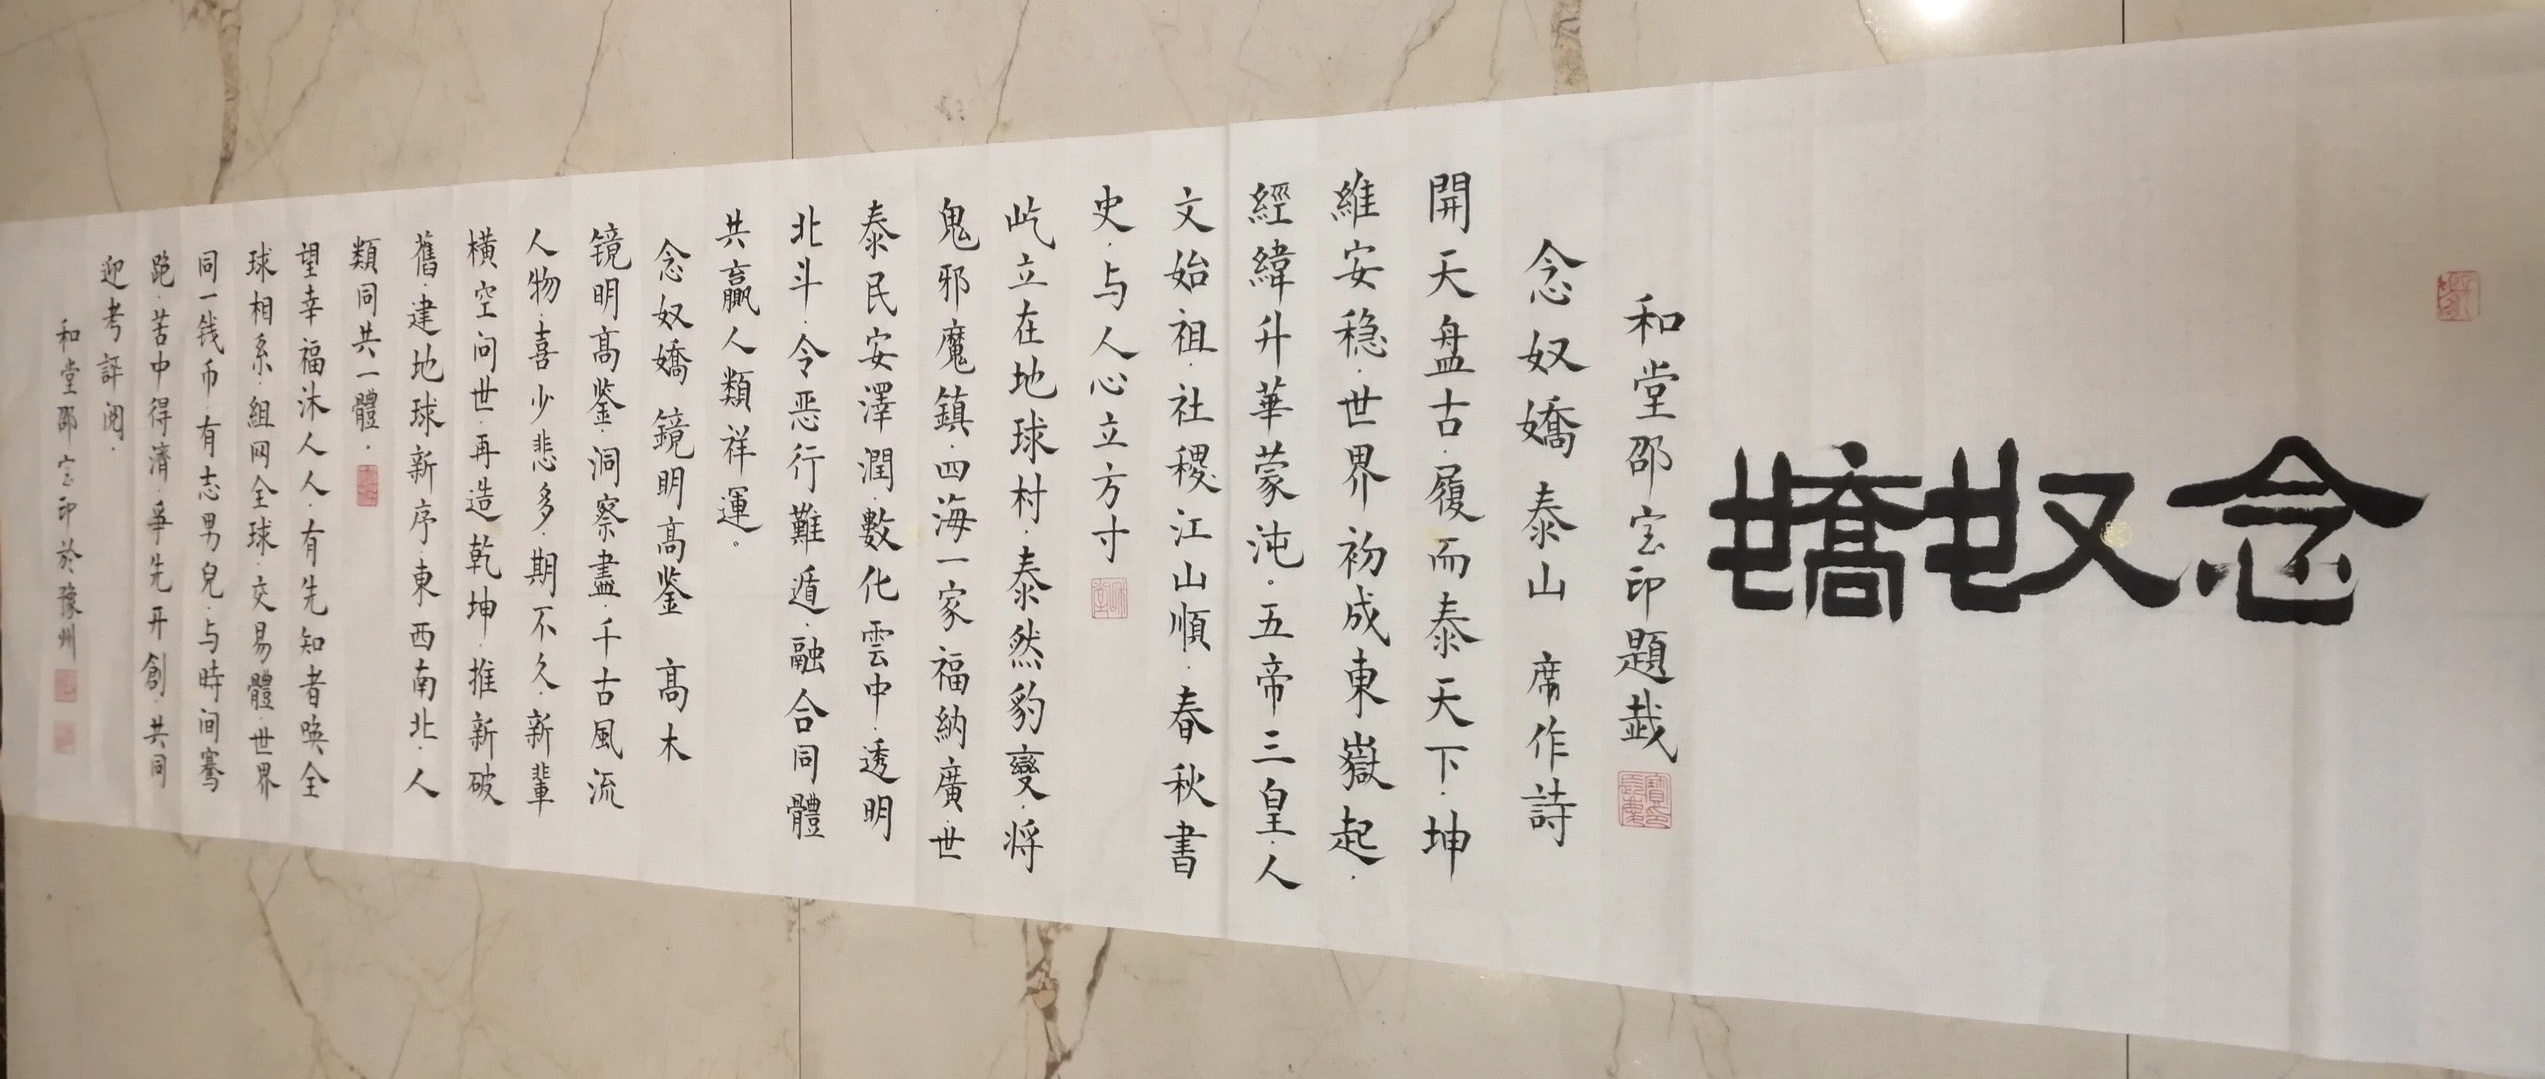 念奴嬌
和堂邵宝印題
念奴嬌 泰山 席作詩
開天盤古·履而泰天天下·坤
維安穏·世界初成東嶽起·
經緯升華蒙沌·五帝三皇·人
文始祖·社稷江山順·春秋書
史·与人心立方寸
屹立在地球村·泰然豹變·将
鬼邪魔鎮·四海一家福納廣·世
泰民安澤潤·數化雲中·透明
北斗·令恶行難遁·融合同體
共贏人類祥運。
念奴嬌 鏡明高鉴 高木
镜明高鉴·洞察盡·千古風流
人物·喜少悲多·期不久·新輩
横空问世·再造乾坤·推新破
舊·建地球新序·東西南北·人
類同共一體·
望幸福沐人人·有先知者唤全
球相系·組网全球·交易體·世界
同一钱币·有志男兒·与時间骞
跑·苦中得濟·爭先开創·共同
迎考評阅·
和堂邵宝印於豫州